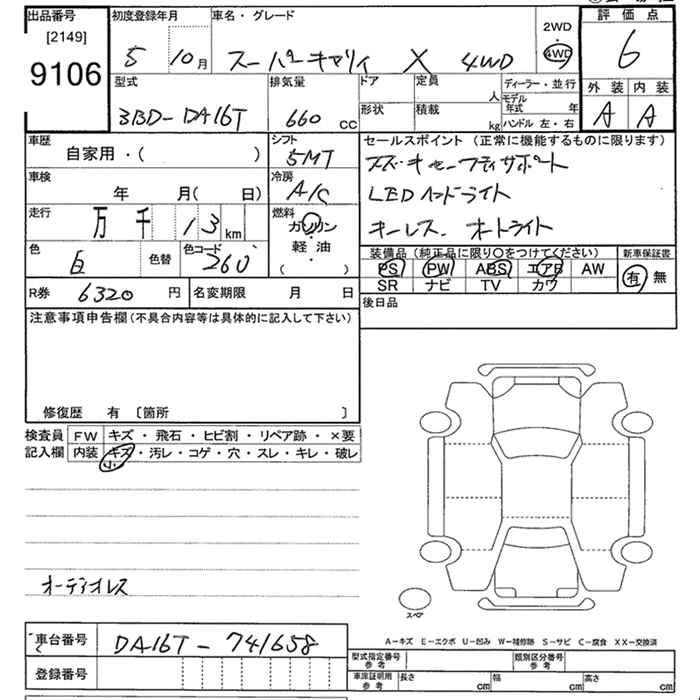 出品番号 初度登録年月 車名・グレード 評価点
[2149]
9106
5 10月 スーパーキャリィ X 4WD
2WD
4WD
6
型式 排気量 ドア 定員 人 ディーラー・並行 外装 内装
3BD-DA16T 660 CC 形状 積載 kg モデル年式 年 ハンドル 左・右 A A
車歴 シフト セールスポイント (正常に機能するものに限ります)
自家用・( ) 5MT
スズキセーフティサポート
車検 冷房
年 月( 日) A/C
LEDヘッドライト
走行 万 千 13 km 燃料 ガソリン
キーレス. オートライト
軽・油
( ・ )
色 白 色替 色コード 26U
装備品 (純正品に限り〇をつけてください) 新車保証書
PS PW ABS エアB AW 有 無
SR ナビ TV カワ
R券 6320 円 名変期限 月 日
後日品
注意事項申告欄(不具合内容等は具体的に記入して下さい)
修復歴 有 〔箇所 〕
検査員 FW キズ・飛石・ヒビ割・リペア跡・×要
記入欄 内装 キズ・汚レ・コゲ・穴・スレ・キレ・破レ
小
オーディオレス
スペア
A-キズ E-エクボ U-凹み W-補修跡 S-サビ C-腐食 XX-交換済
車台番号 DA16T-741658
型式指定番号 参考 類別区分番号 参考
登録番号
車庫証明用 参考 長さ cm 幅 cm 高さ cm